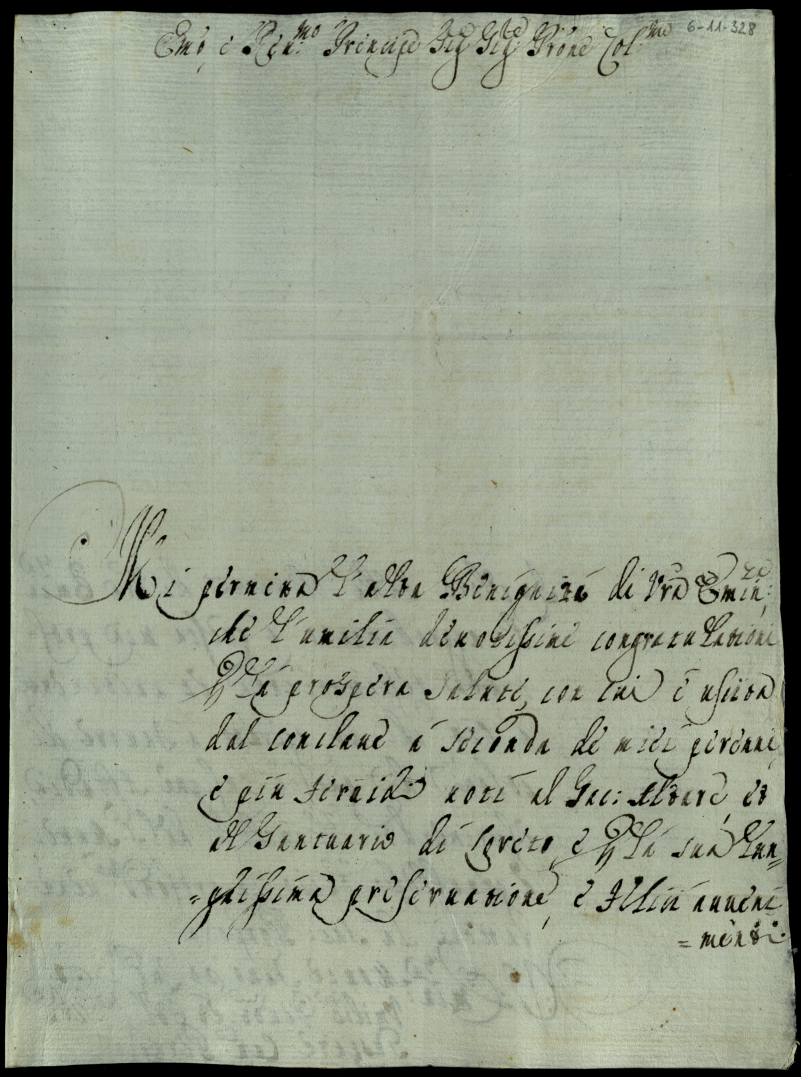 6-11-328
Emo, e Rev:mo Principe Sig Sig Prone Col:mo
Mi permetta l'alta Benignità di Vra Emin:
che l'umilia devotissime congratulationi
la prospera salute, con cui è uscita
dal conclave a seconda de miei perenni,
e più fervidi voti al Sac: Altare, et
al Santuario di Loreto, e la sua lun=
=ghissima preservatione, e felici aveni
=menti.